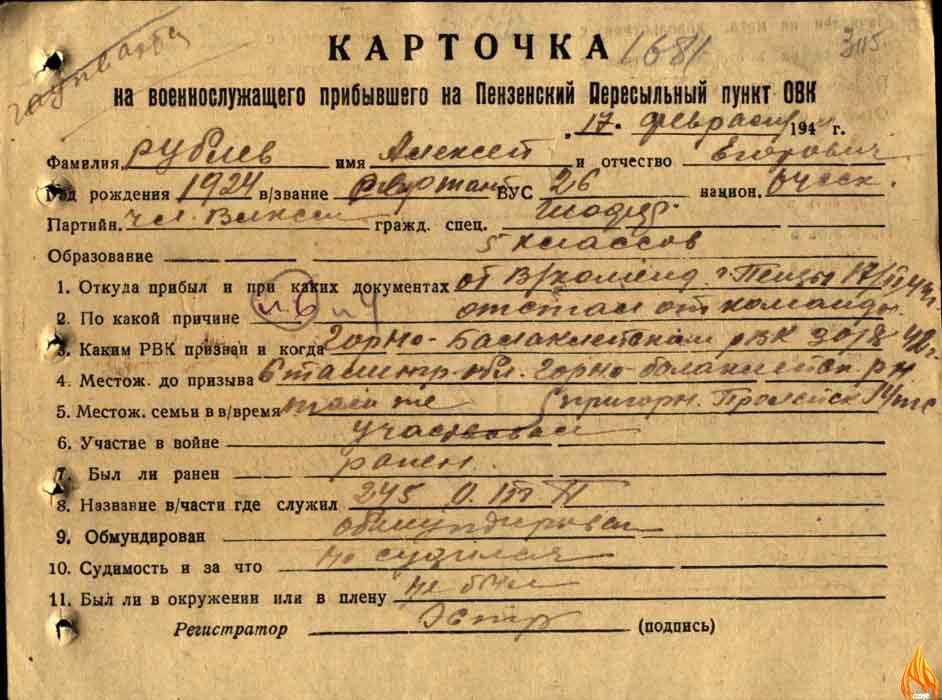 КАРТОЧКА 1681
на военнослужащего прибывшего на Пензенский Пересыльный пункт ОВК
„17" февраля 194 г.
Фамилия Рублев имя Алексей и отчество Егорович
Год рождения 1924 в/звание сержант ВУС 26 национ. русск.
Партийн. чл. гражд. спец.
Образование 5 классов
1. Откуда прибыл и при каких документах от В/коменд. г. Пензы 17/II
2. По какой причине отстал от команды
3. Каким РВК призван и когда Горно-Балаклейским РВК
4. Местож. до призыва обл. Горно-балаклейск р-н
5. Местож. семьи в в/время там же
6. Участие в войне участвовал
7. Был ли ранен ранен.
8. Название в/части где служил 245
9. Обмундирован обмундирован
10. Судимость и за что не судился
11. Был ли в окружении или в плену не был
Регистратор (подпись)